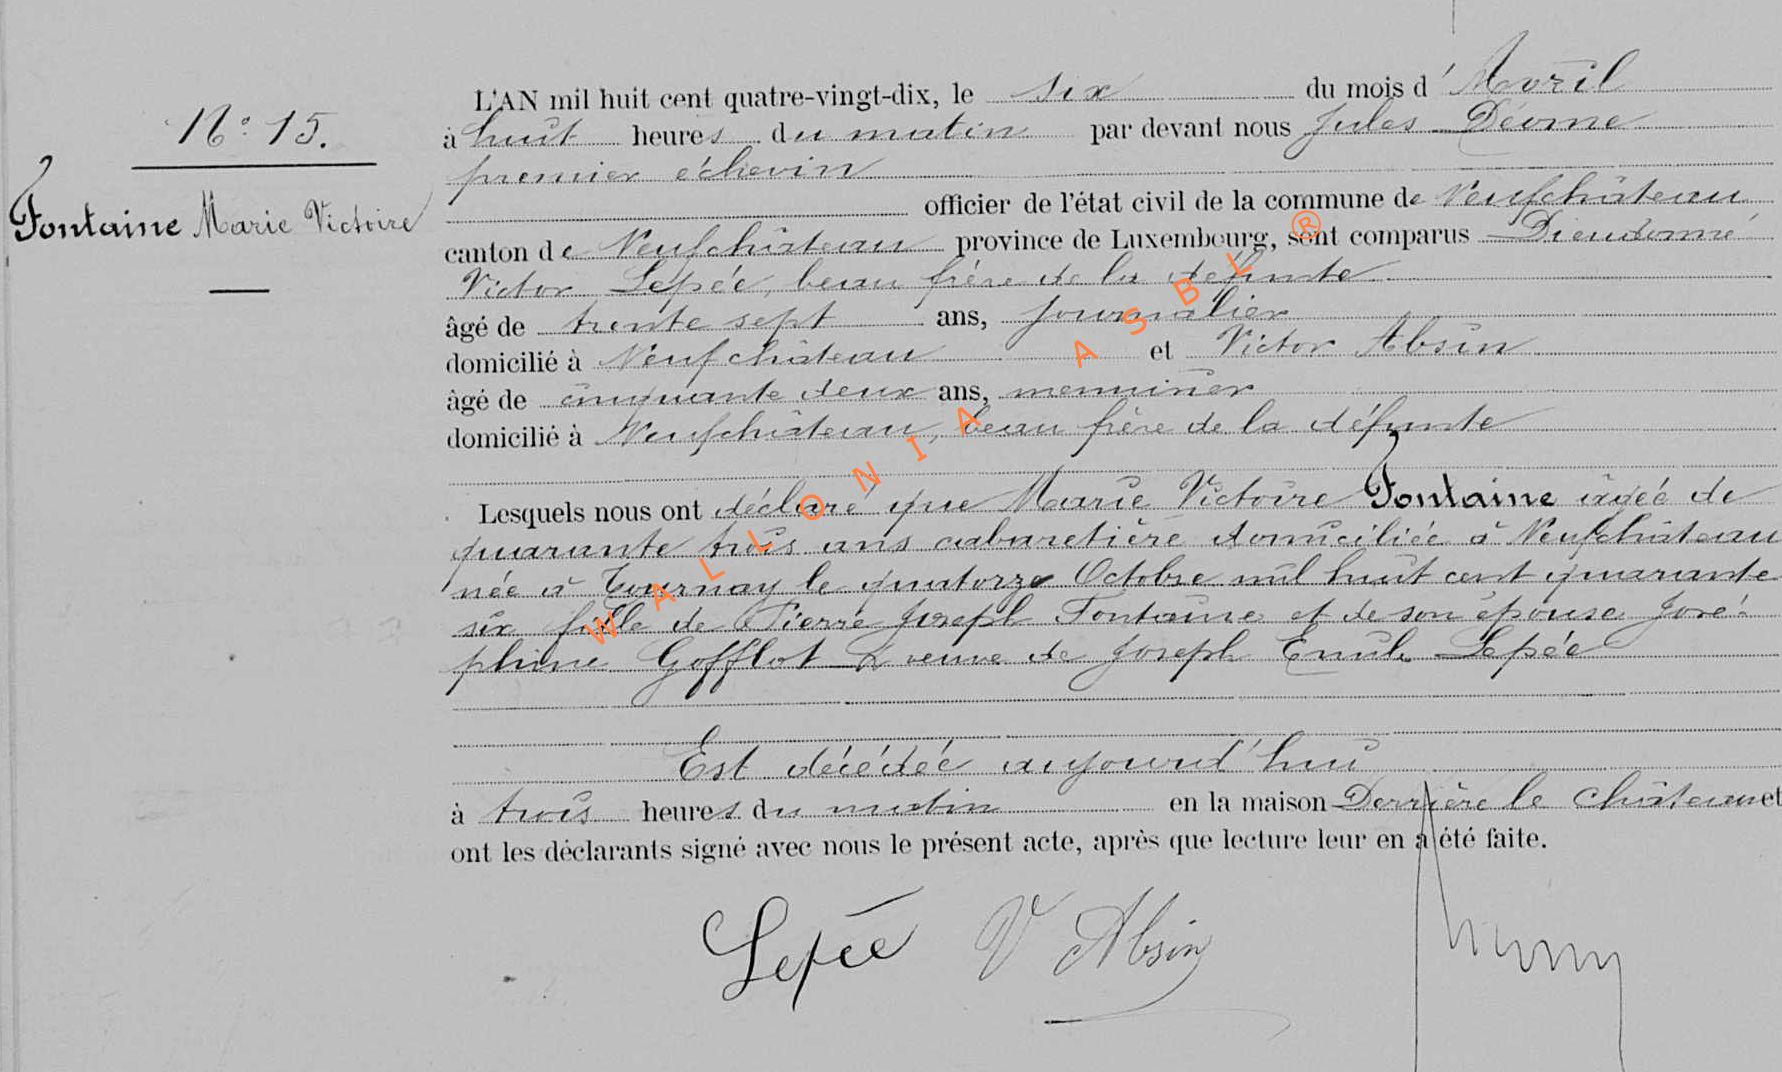 N° 15.
Fontaine Marie Victoire
L'AN mil huit cent quatre-vingt-dix, le six du mois d'Avril
à huit heures du matin par devant nous Jules
premier échevin
officier de l'état civil de la commune de Neufchâteau
canton de Neufchâteau province de Luxembourg, sont comparus Dieudonné
Victor Lepée, beau frère de la défunte
âgé de trente sept ans, journalier
domicilié à Neufchâteau et Victor Absin
âgé de cinquante deux ans, menuisier
domicilié à Neufchâteau, beau frère de la défunte
Lesquels nous ont déclaré que Marie Victoire Fontaine âgée de
quarante trois ans cabaretière domiciliée à Neufchâteau
née à Tournay le quatorze Octobre mil huit cent quarante
six fille de Pierre Joseph Fontaine et de son épouse José-
phine Gofflot & veuve de Joseph Emile Lepée
Est décédée aujourd'hui
à trois heures du matin en la maison Derrière le château et
ont les déclarants signé avec nous le présent acte, après que lecture leur en a été faite.
Lepée V Absin
WALLONIA ASBL ®